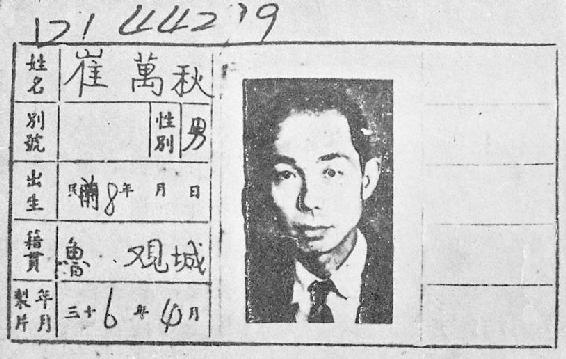 12144239
姓名 崔萬秋
別號 性別 男
出生 民前8年 月 日
籍貫 魯 观城
製片年月 三十6年4月